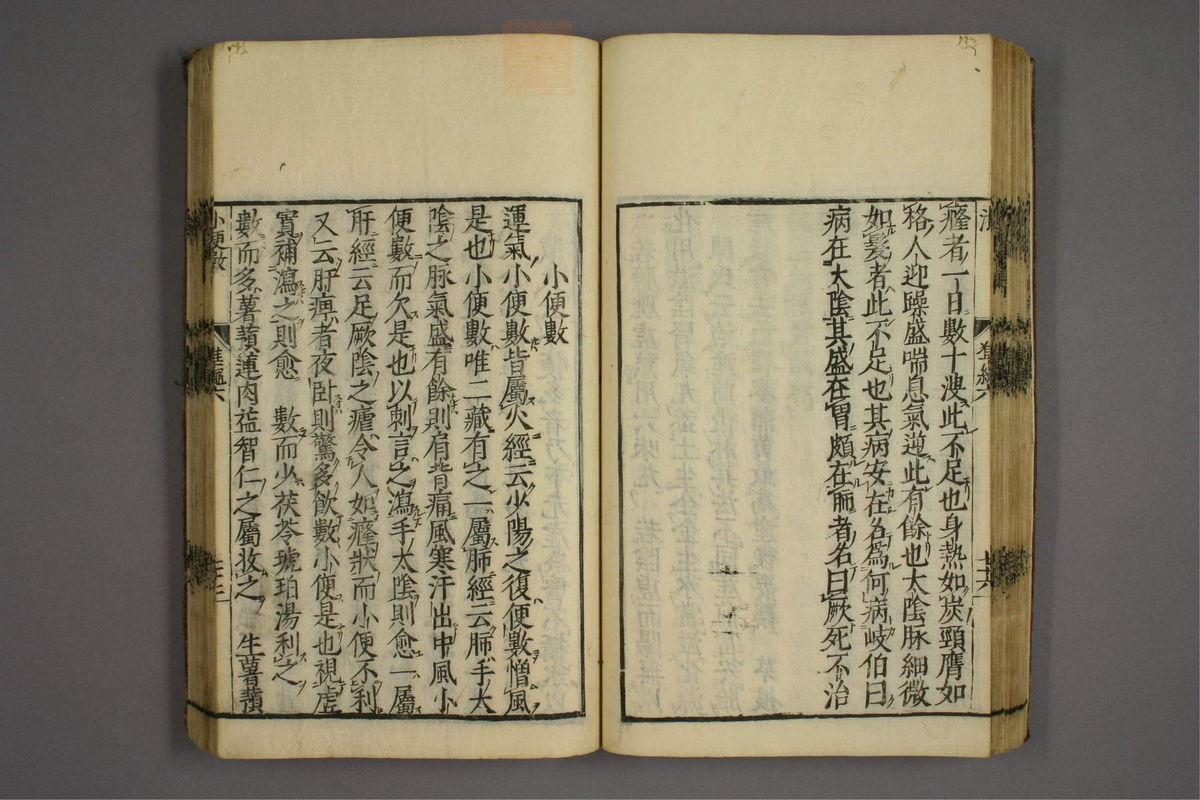 癃者一日數十溲此不足也身熱如炭頸膺如
格人迎躁盛喘息氣逆此有餘也太陰脉細微
如髮者此不足也其病安在名為何病岐伯曰
病在太陰其盛在胃頗在肺者名曰厥死不治
小便數
運氣小便數皆屬火經云少陽之復便數憎風
是也小便數唯二藏有之一屬肺經云肺手太
陰之脉氣盛有餘則肩背痛風寒汗出中風小
便數而欠是也以刺言之瀉手太陰則愈一屬
肝經云足厥陰之瘧令人如癃狀而小便不利
又云肝痺者夜臥則驚多飲數小便是也視虛
實補瀉之則愈 數而少茯苓琥珀湯利之
數而多薯蕷蓮肉益智仁之屬收之 生薯蕷
小便數